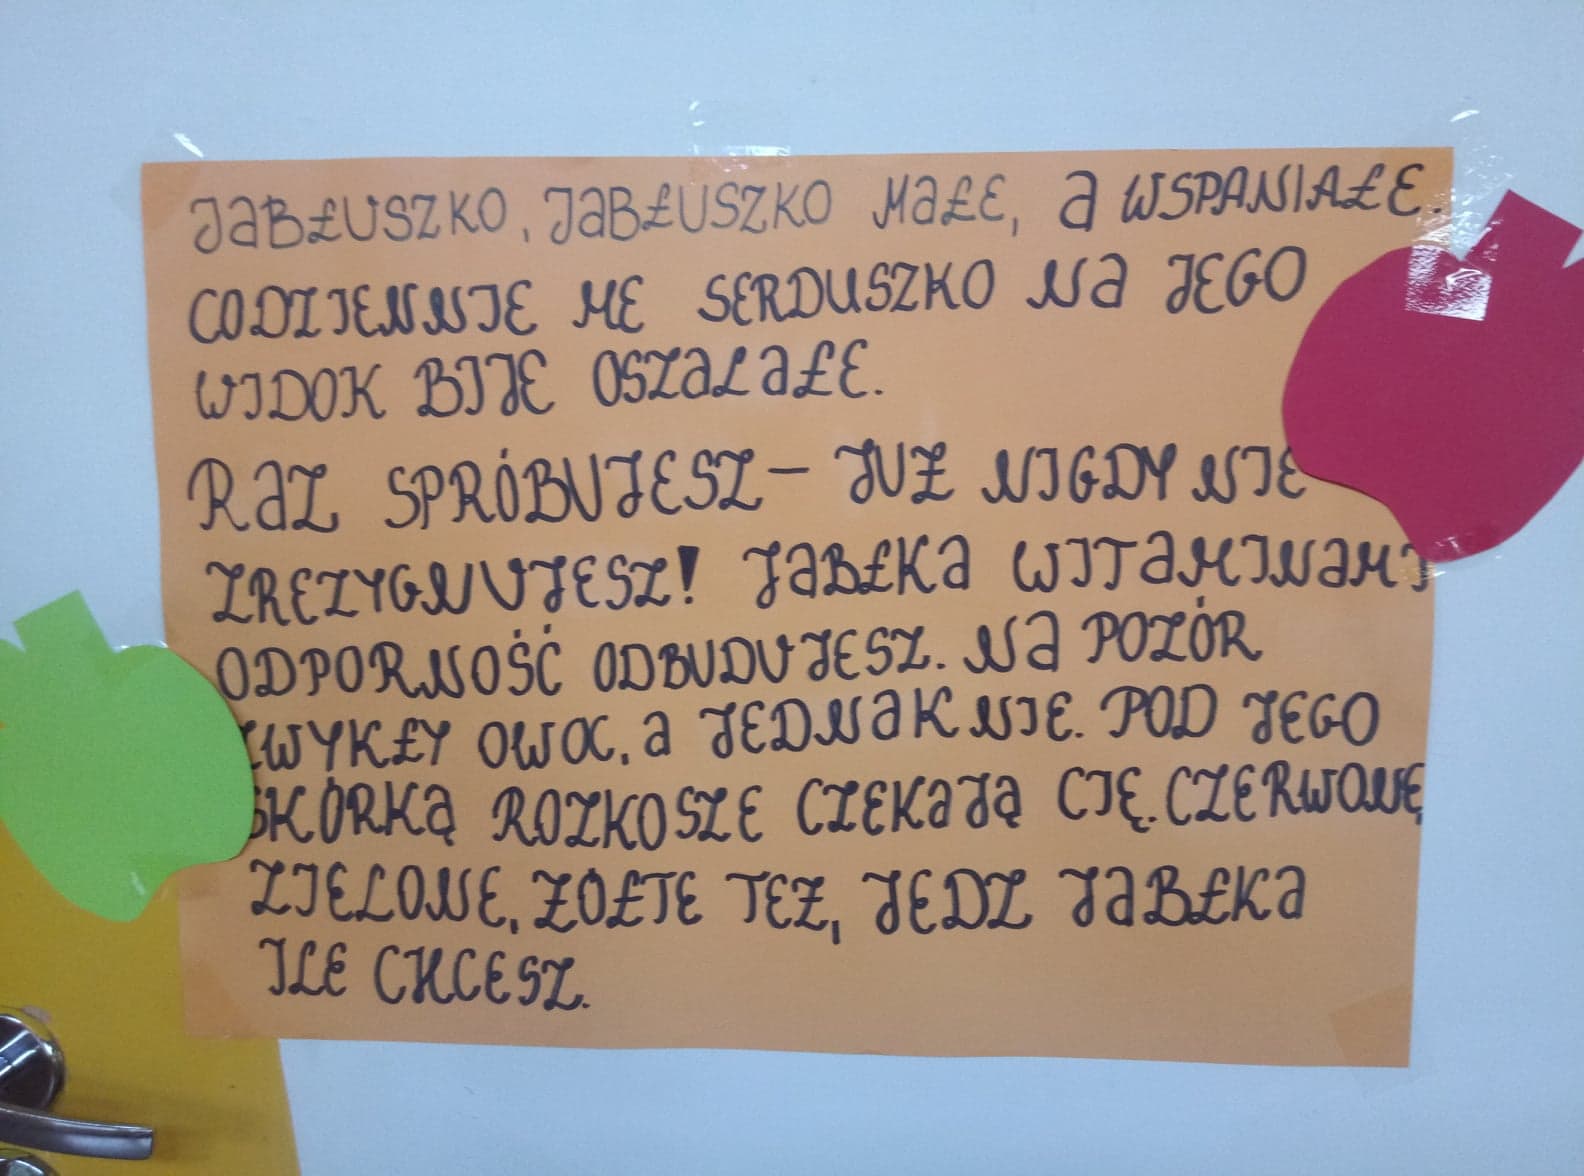 JABŁUSZKO, JABŁUSZKO MAŁE, A WSPANIAŁE.
CODZIENNIE ME SERDUSZKO NA JEGO
WIDOK BIJE OSZALAŁE.
RAZ SPRÓBUJESZ – JUŻ NIGDY NIE
ZREZYGNUJESZ! JABŁKA WITAMINAMI
ODPORNOŚĆ ODBUDUJESZ. NA POZÓR
ZWYKŁY OWOC, A JEDNAK NIE. POD JEGO
SKÓRKĄ ROZKOSZE CZEKAJĄ CIĘ. CZERWONĘ
ZIELONE, ŻÓŁTE TEŻ, JEDZ JABŁKA
ILE CHCESZ.